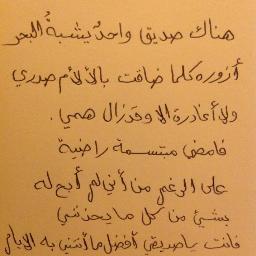 هناك صديق واحد يشبهُ البحر
أزوره كلما ضاقت بالألام صدري
ولا أغادره الا وقد زال همي .
فامضي مبتسمة راضية
على الرغم من أني لم أبح له
بشيئ من كل ما يحزنني
فانت يا صديقي أفضل ما أتتني به الايام